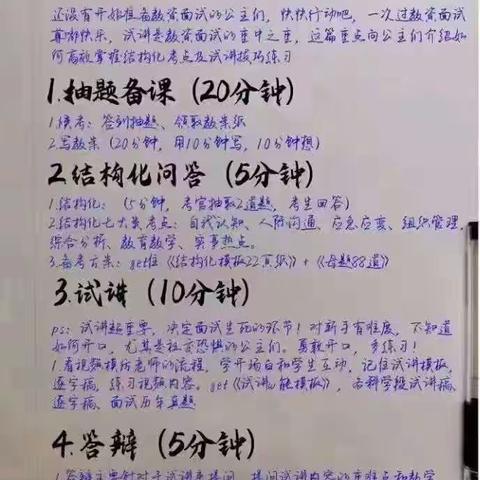 还没有开始准备教资面试的公主们，快快行动吧，一次过教资面试
真嘟快乐，试讲是教资面试的重中之重，这篇重点向公主们介绍如
何高效掌握结构化考点及试讲技巧练习
1.抽题备课（20分钟）
1候考：签到抽题、领取教案纸
2写教案（20分钟，用10分钟写，10分钟想）
2.结构化问答（5分钟）
1.结构化：（5分钟，考官抽取2道题，考生回答）
2结构化七大类考点：自我认知、人际沟通、应急应变、组织管理、
综合分析、教育教学、实事热点。
3.备考方案：get住《结构化模板22页纸》+《母题88道》
3.试讲（10分钟）
ps：试讲超重要，决定面试生死的环节！对新手有难度，不知道
如何开口，尤其是社交恐惧的公主们。勇敢开口，多练习！
1.看视频模仿老师的流程，学开场白和学生互动，记住试讲模板，
逐字稿，练习视频内容。get《试讲万能模板》，各科学段试讲稿、
逐字稿、面试历年真题
4.答辩（5分钟）
1.答辩主要针对于试讲来提问，提问试讲内容的重难点和教学